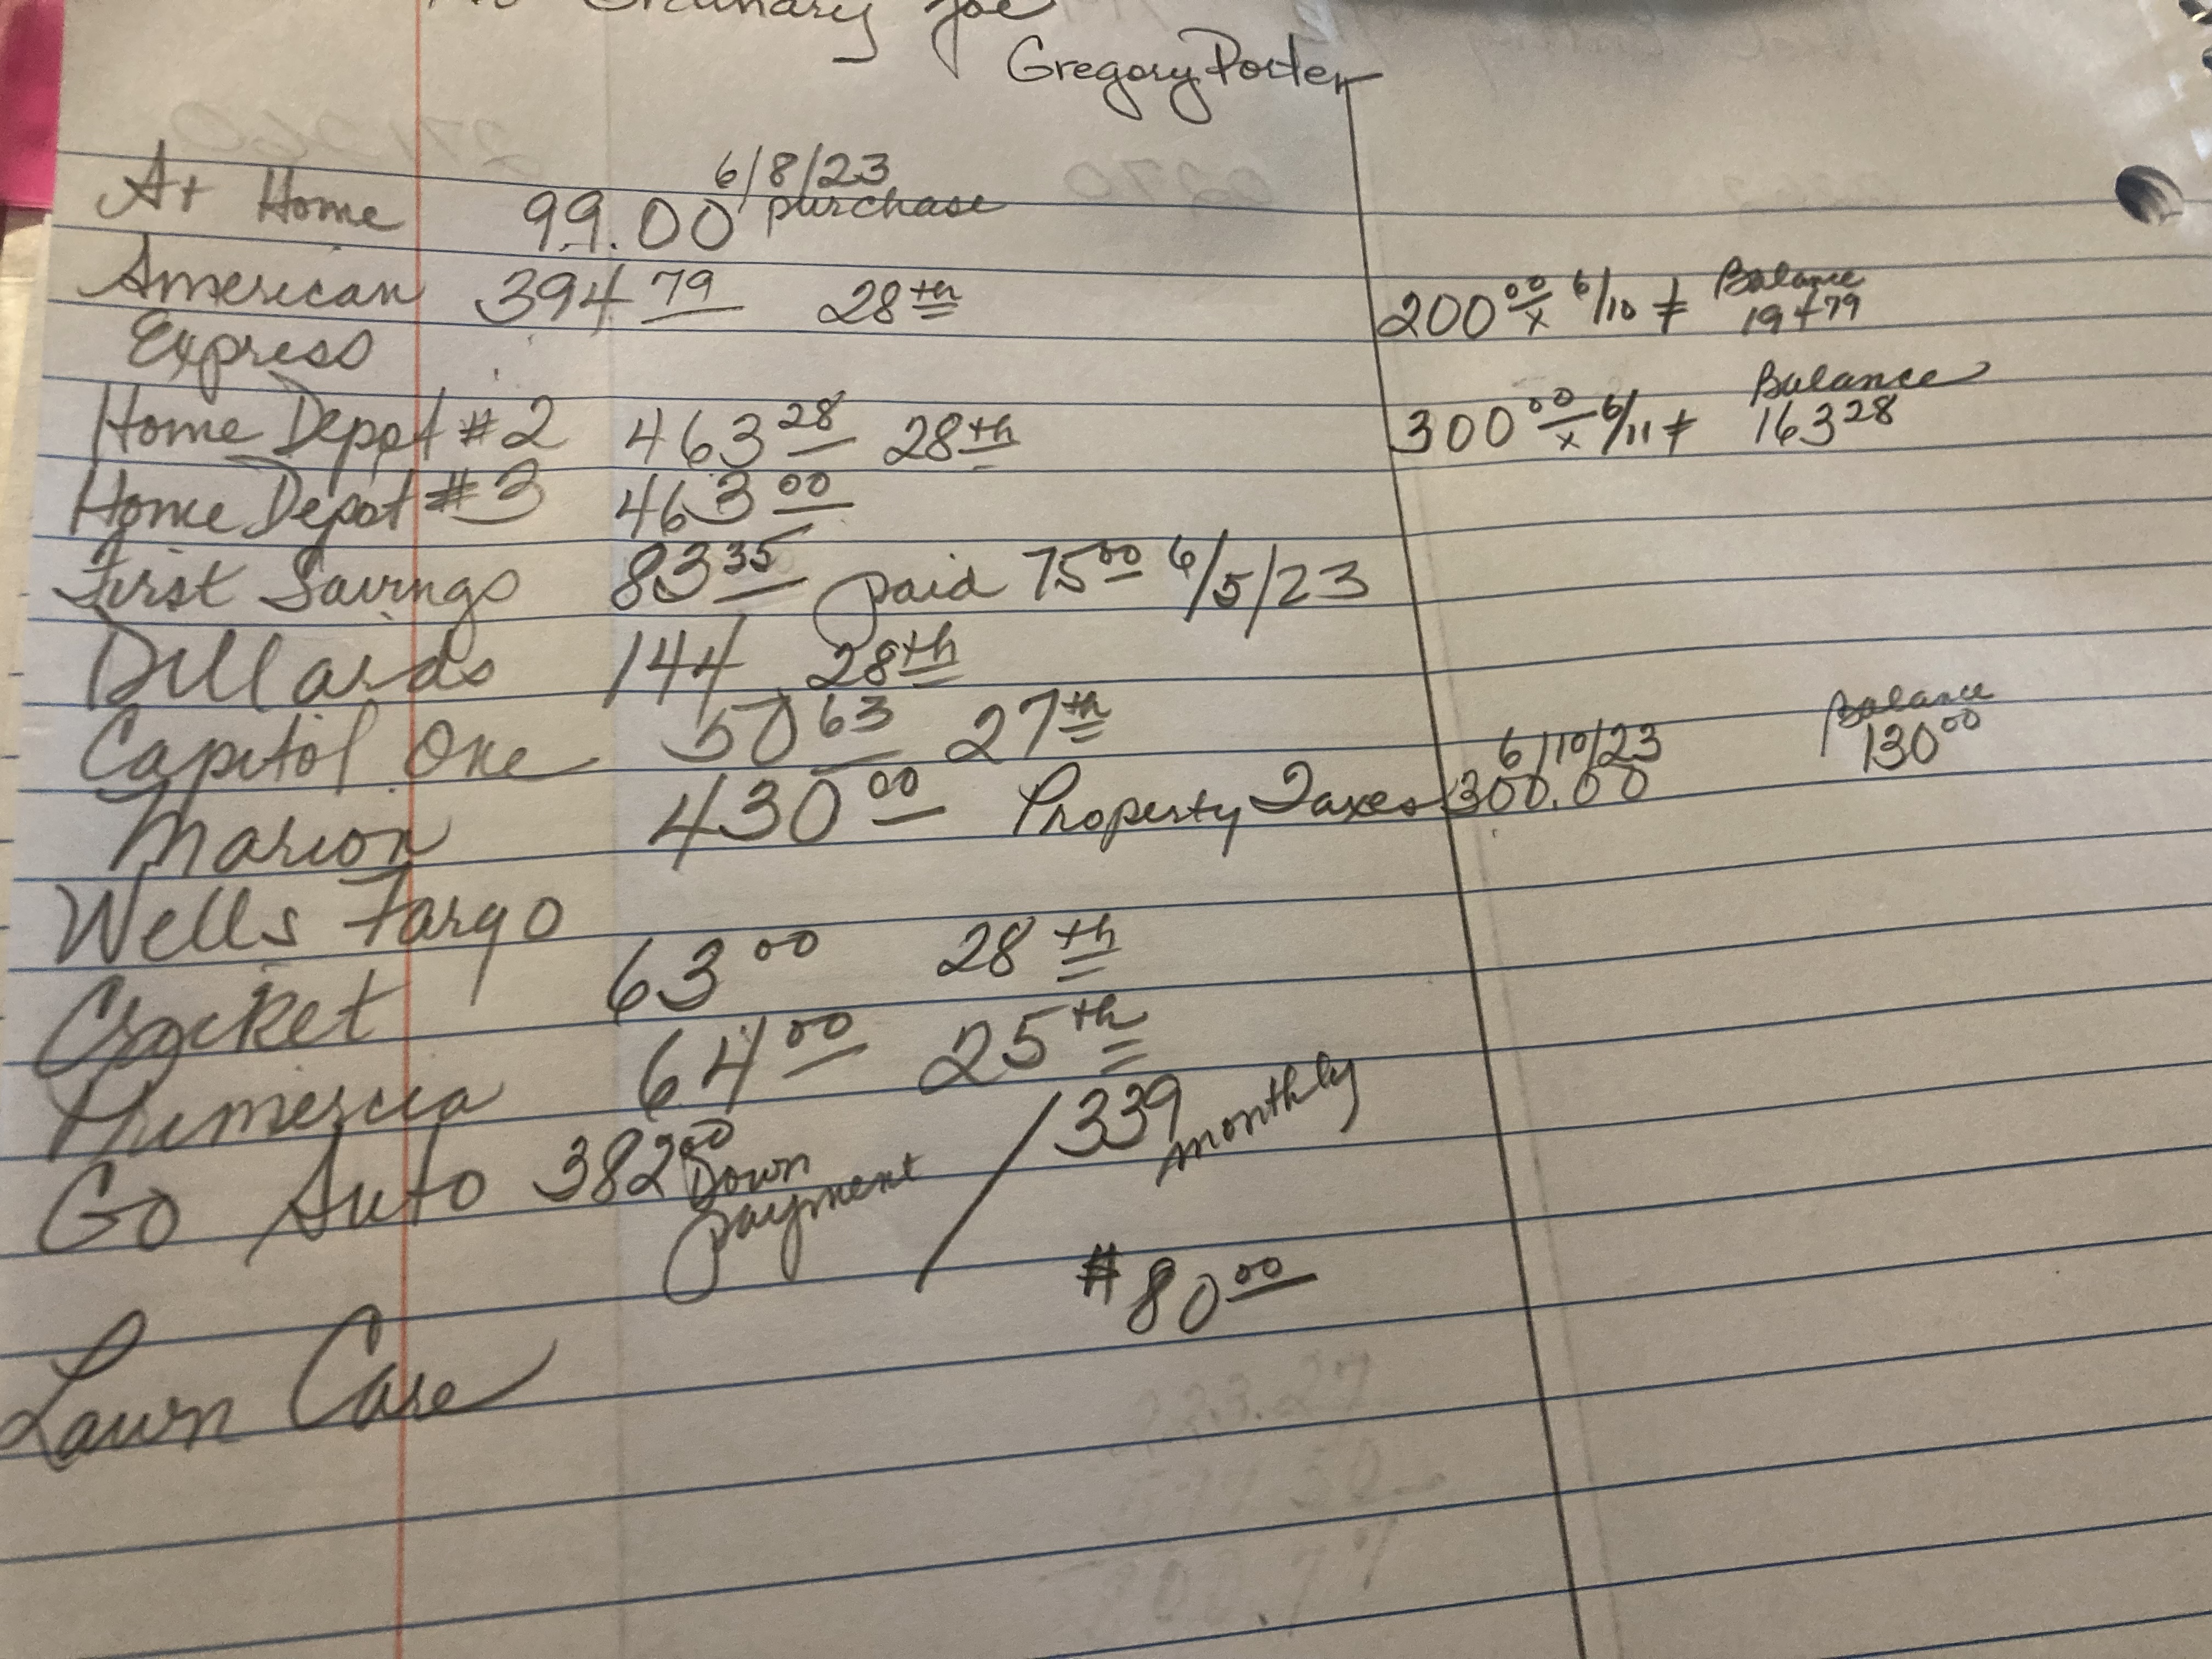 Ordinary Joe
Gregory Porter
6/8/23
At Home 99.00 purchase
American 394 79 28th 200 00 x 6/10 Balance 194 79
Express
Home Depot #2 463 28 28th 300 00 x 6/11 Balance 163 28
Home Depot #3 463 00
First Savings 83 35 paid 75 00 6/5/23
Dillards 144 28th
Capitol One 50 63 27th
Marion 430 00 Property Taxes 6/10/23 300.00 Balance 130 00
Wells Fargo
Cricket 63 00 28th
Primerica 64 00 25th
Go Auto 382 00 Down payment / 339 monthly
Lawn Care #80 00